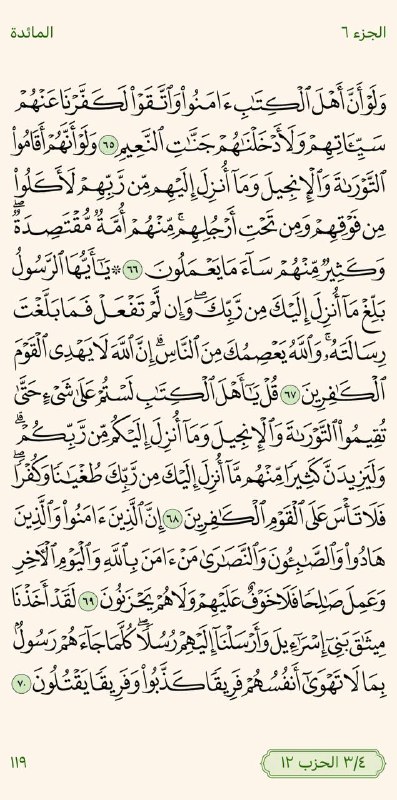 الجزء ٦
المائدة
وَلَوْ أَنَّ أَهْلَ ٱلْكِتَٰبِ ءَامَنُوا۟ وَٱتَّقَوْا۟ لَكَفَّرْنَا عَنْهُمْ
سَيِّـَٔاتِهِمْ وَلَأَدْخَلْنَٰهُمْ جَنَّٰتِ ٱلنَّعِيمِ ٦٥ وَلَوْ أَنَّهُمْ أَقَامُوا۟
ٱلتَّوْرَىٰةَ وَٱلْإِنجِيلَ وَمَآ أُنزِلَ إِلَيْهِم مِّن رَّبِّهِمْ لَأَكَلُوا۟
مِن فَوْقِهِمْ وَمِن تَحْتِ أَرْجُلِهِم ۚ مِّنْهُمْ أُمَّةٌ مُّقْتَصِدَةٌ ۖ
وَكَثِيرٌ مِّنْهُمْ سَآءَ مَا يَعْمَلُونَ ٦٦ ۞ يَٰٓأَيُّهَا ٱلرَّسُولُ
بَلِّغْ مَآ أُنزِلَ إِلَيْكَ مِن رَّبِّكَ ۖ وَإِن لَّمْ تَفْعَلْ فَمَا بَلَّغْتَ
رِسَالَتَهُۥ ۚ وَٱللَّهُ يَعْصِمُكَ مِنَ ٱلنَّاسِ ۗ إِنَّ ٱللَّهَ لَا يَهْدِى ٱلْقَوْمَ
ٱلْكَٰفِرِينَ ٦٧ قُلْ يَٰٓأَهْلَ ٱلْكِتَٰبِ لَسْتُمْ عَلَىٰ شَىْءٍ حَتَّىٰ
تُقِيمُوا۟ ٱلتَّوْرَىٰةَ وَٱلْإِنجِيلَ وَمَآ أُنزِلَ إِلَيْكُم مِّن رَّبِّكُمْ ۗ
وَلَيَزِيدَنَّ كَثِيرًا مِّنْهُم مَّآ أُنزِلَ إِلَيْكَ مِن رَّبِّكَ طُغْيَٰنًا وَكُفْرًا ۖ
فَلَا تَأْسَ عَلَى ٱلْقَوْمِ ٱلْكَٰفِرِينَ ٦٨ إِنَّ ٱلَّذِينَ ءَامَنُوا۟ وَٱلَّذِينَ
هَادُوا۟ وَٱلصَّٰبِـُٔونَ وَٱلنَّصَٰرَىٰ مَنْ ءَامَنَ بِٱللَّهِ وَٱلْيَوْمِ ٱلْءَاخِرِ
وَعَمِلَ صَٰلِحًا فَلَا خَوْفٌ عَلَيْهِمْ وَلَا هُمْ يَحْزَنُونَ ٦٩ لَقَدْ أَخَذْنَا
مِيثَٰقَ بَنِىٓ إِسْرَٰٓءِيلَ وَأَرْسَلْنَآ إِلَيْهِمْ رُسُلًا ۖ كُلَّمَا جَآءَهُمْ رَسُولٌۢ
بِمَا لَا تَهْوَىٰٓ أَنفُسُهُمْ فَرِيقًا كَذَّبُوا۟ وَفَرِيقًا يَقْتُلُونَ ٧٠
٣/٤ الحزب ١٢
١١٩